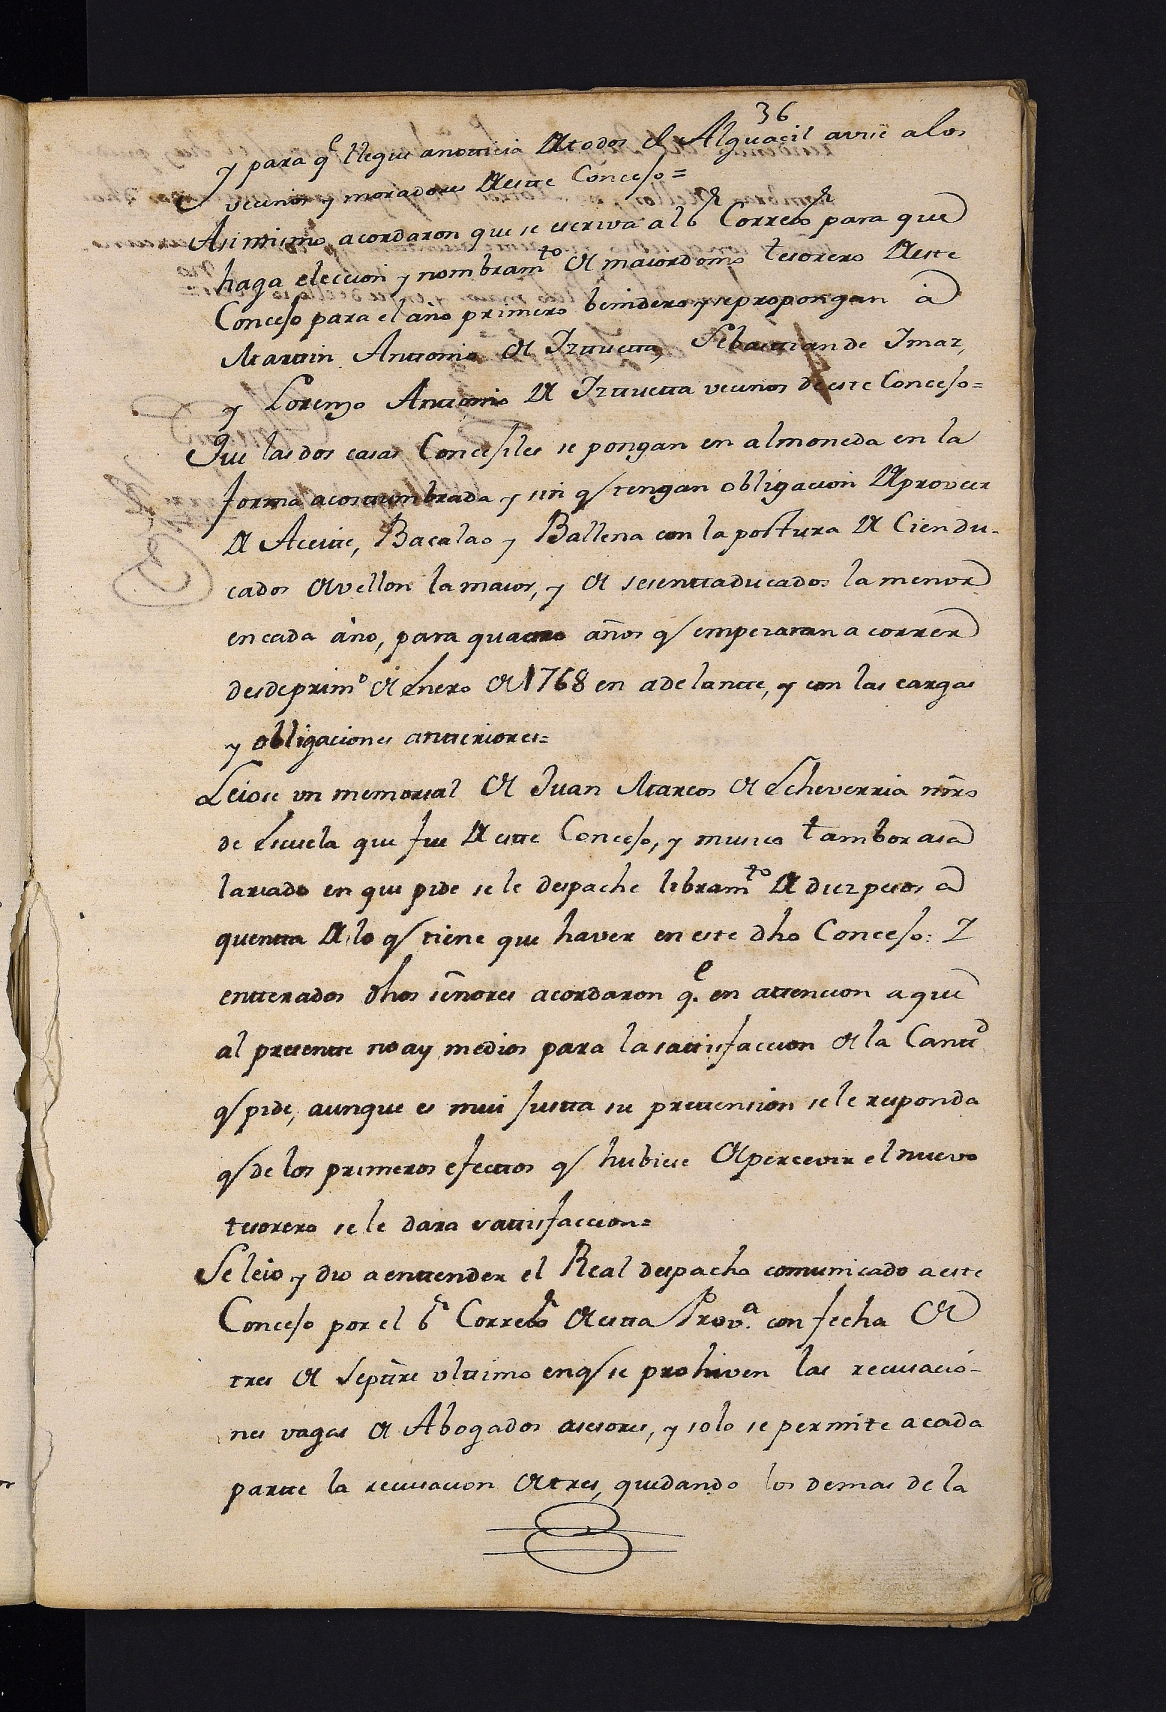 36
y para q.e llegue anotticia de todos el Alguacil avise alos
vecinos y moradores de este Concejo=
Asimismo acordaron que se escriva al S.r Correx.or para que
haga eleccion y nombram.to de maiordomo tesorero de este
Concejo para el año primero benidero y se propongan à
Marttin Anttonio de Irttuetta, Sebasttian de Imaz,
y Lorenzo Anttonio de Irttuetta vecinos de este Concejo=
Que las dos casas Concejiles se pongan en almoneda en la
forma acosttumbrada y sin q tengan obligacion de proveer
de Aceitte, Bacalao y Ballena con la postura de Cien du-
cados de vellon la maior, y de sesentta ducados la menor
en cada año, para quattro años q empezaran a correr
desde prim.o de Enero de 1768 en adelantte, y con las cargas
y obligaciones antteriores=
Leiose un memorial de Juan Marcos de Echeverria mro
de Escuela que fue de estte Concejo, y musico tambor asa
lariado en que pide se le despache libram.to de diez pesos a
quentta de lo q tiene que haver en este dho Concejo: Y
entterados dhos señores acordaron q.e en attencion a que
al presentte no ay medios para la sattisfaccion de la Cantt.d
q pide, aunque es mui justta su prettension se le responda
q de los primeros efecttos q hubiese de percevir el nuevo
tesorero se le dara sattisfaccion=
Se leio y dio a enttender el Real despacho comunicado a este
Concejo por el S.r Correx.or de estta Prov.a con fecha de
tres de Septtre ulttimo en q se prohiven las recusacio-
nes vagas de Abogados asesores, y solo se permite a cada
partte la recusacion de tres, quedando los demas de la